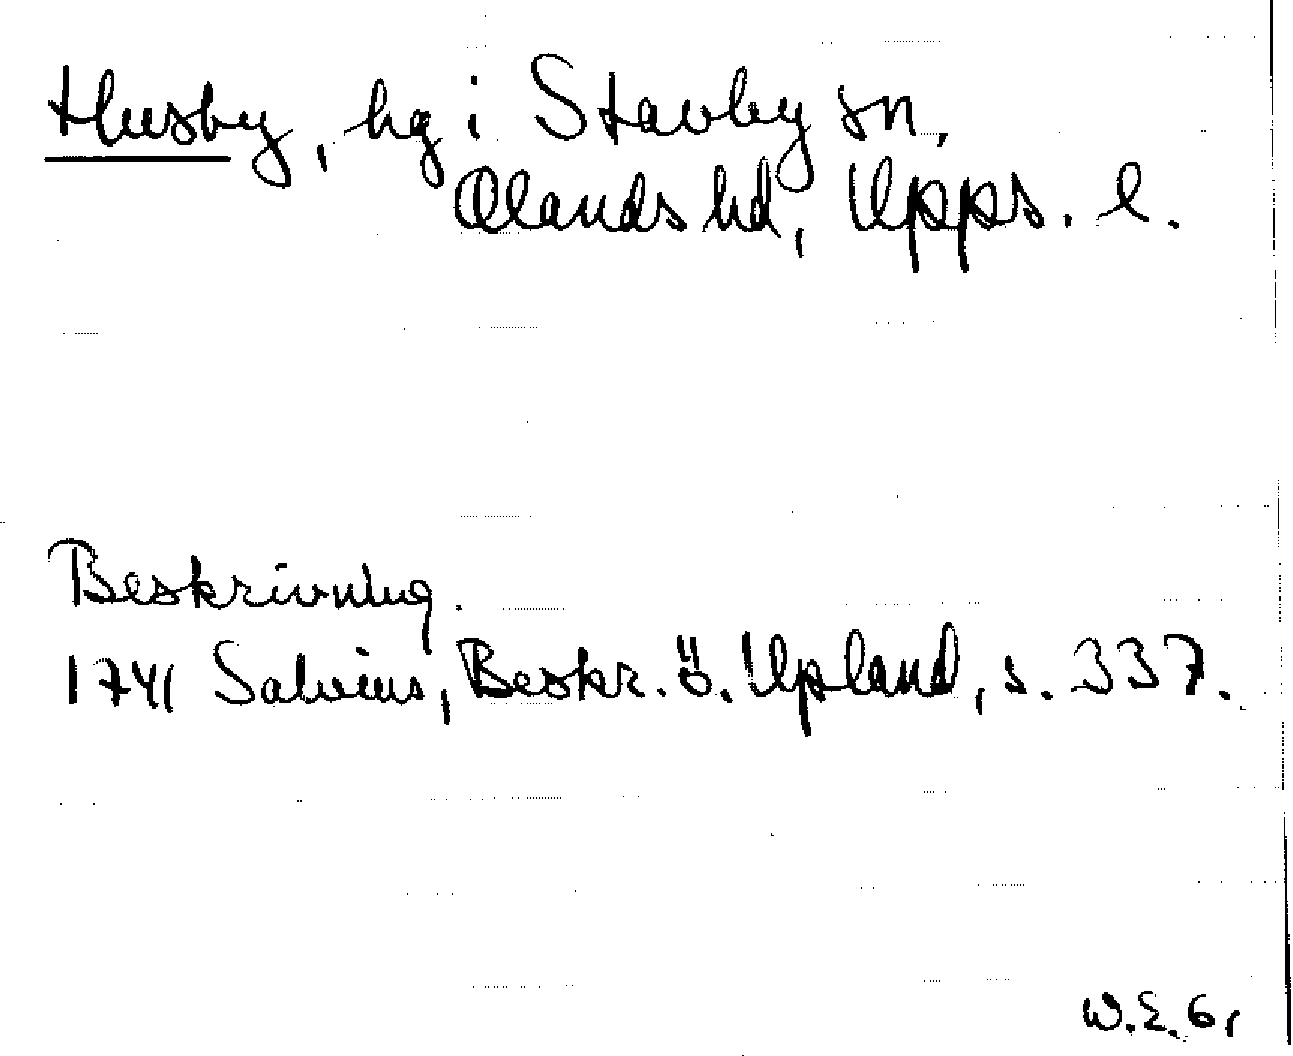 Husby, hg i Stavby sn,
Olands hd, Upps. l.
Beskrivning.
1741 Salvius, Beskr. ö. Upland, s. 337.
W.E. 61